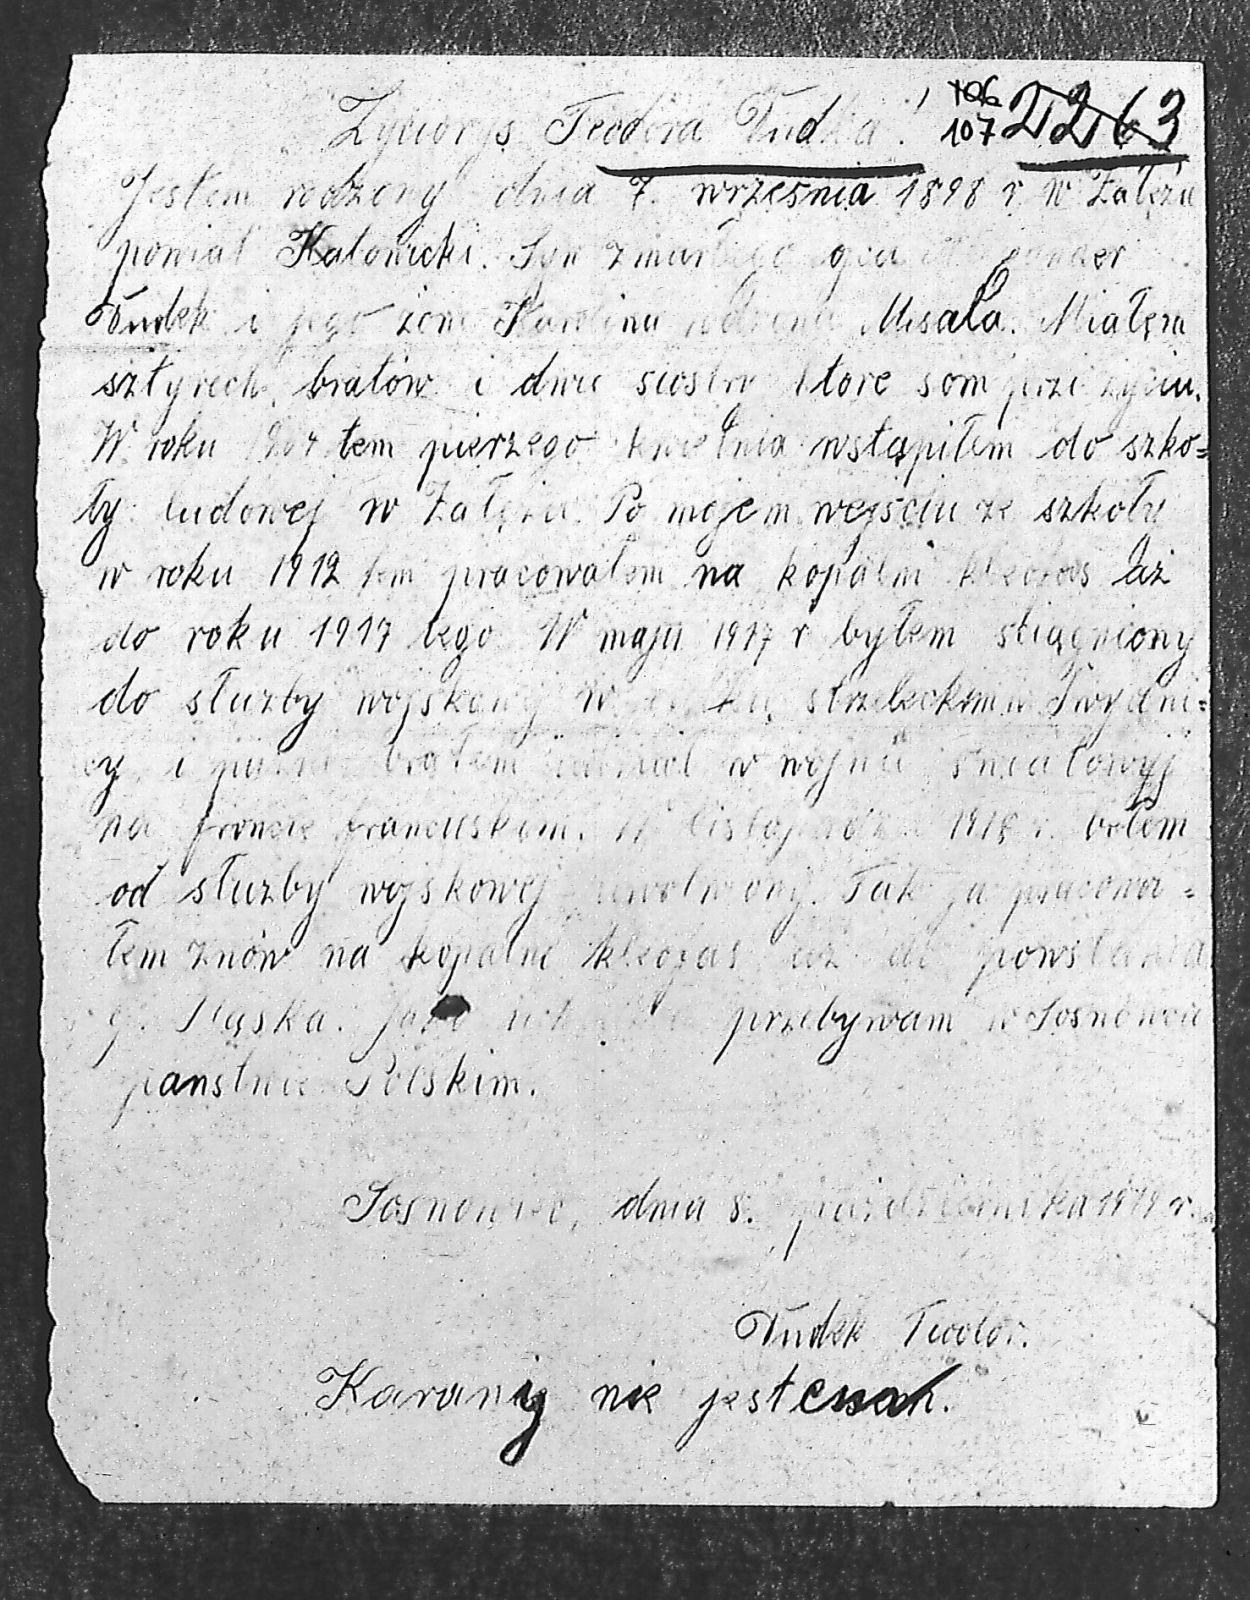 Życiorys Teodora Dudka! 106
107 2263
Jestem rodzony dnia 7. września 1898 r. w Załężu
powiat Katowicki. Syn zmarłego ojca
Dudek i jego żoni Karolina rodzena Misala. Miałem
sztyrech bratów i dwie siostry ktore som przi życiu.
W roku 1904 tem pierzego kwietnia wstąpiłem do szko=
ły ludowej w Załężu. Po mojem wejściu ze szkoły
w roku 1912 tem pracowałem na kopalni kleofas aż
do roku 1917 tego. W maju 1917 r byłem sciągniony
do służby wojskowej w strzeleckim w Swydni=
cy i brałem udział w wojnie światowyj
na froncie francuskim. W listopadzie 1918 r. bełem
od służby wojskowej uwolniony. Tak ja pracowa=
łem znów na kopalni kleofas aż do powstania
G. Sląska. Jako przebywam w Sosnowcu
panstwie Polskim.
Sosnowiec, dnia 8. października 1919 r.
Dudek Teodor.
Karany nie jestem.